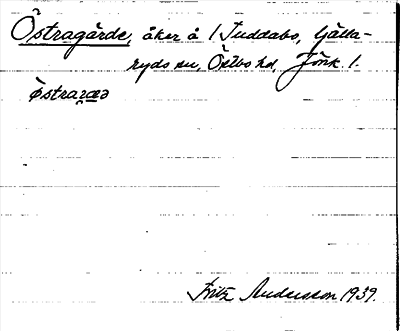 Östragärde, åker å 1 Tuddabo, Gälla-
ryds sn, Östbo hd, Jönk. l.
östraræ
Fritz Andersson 1939.